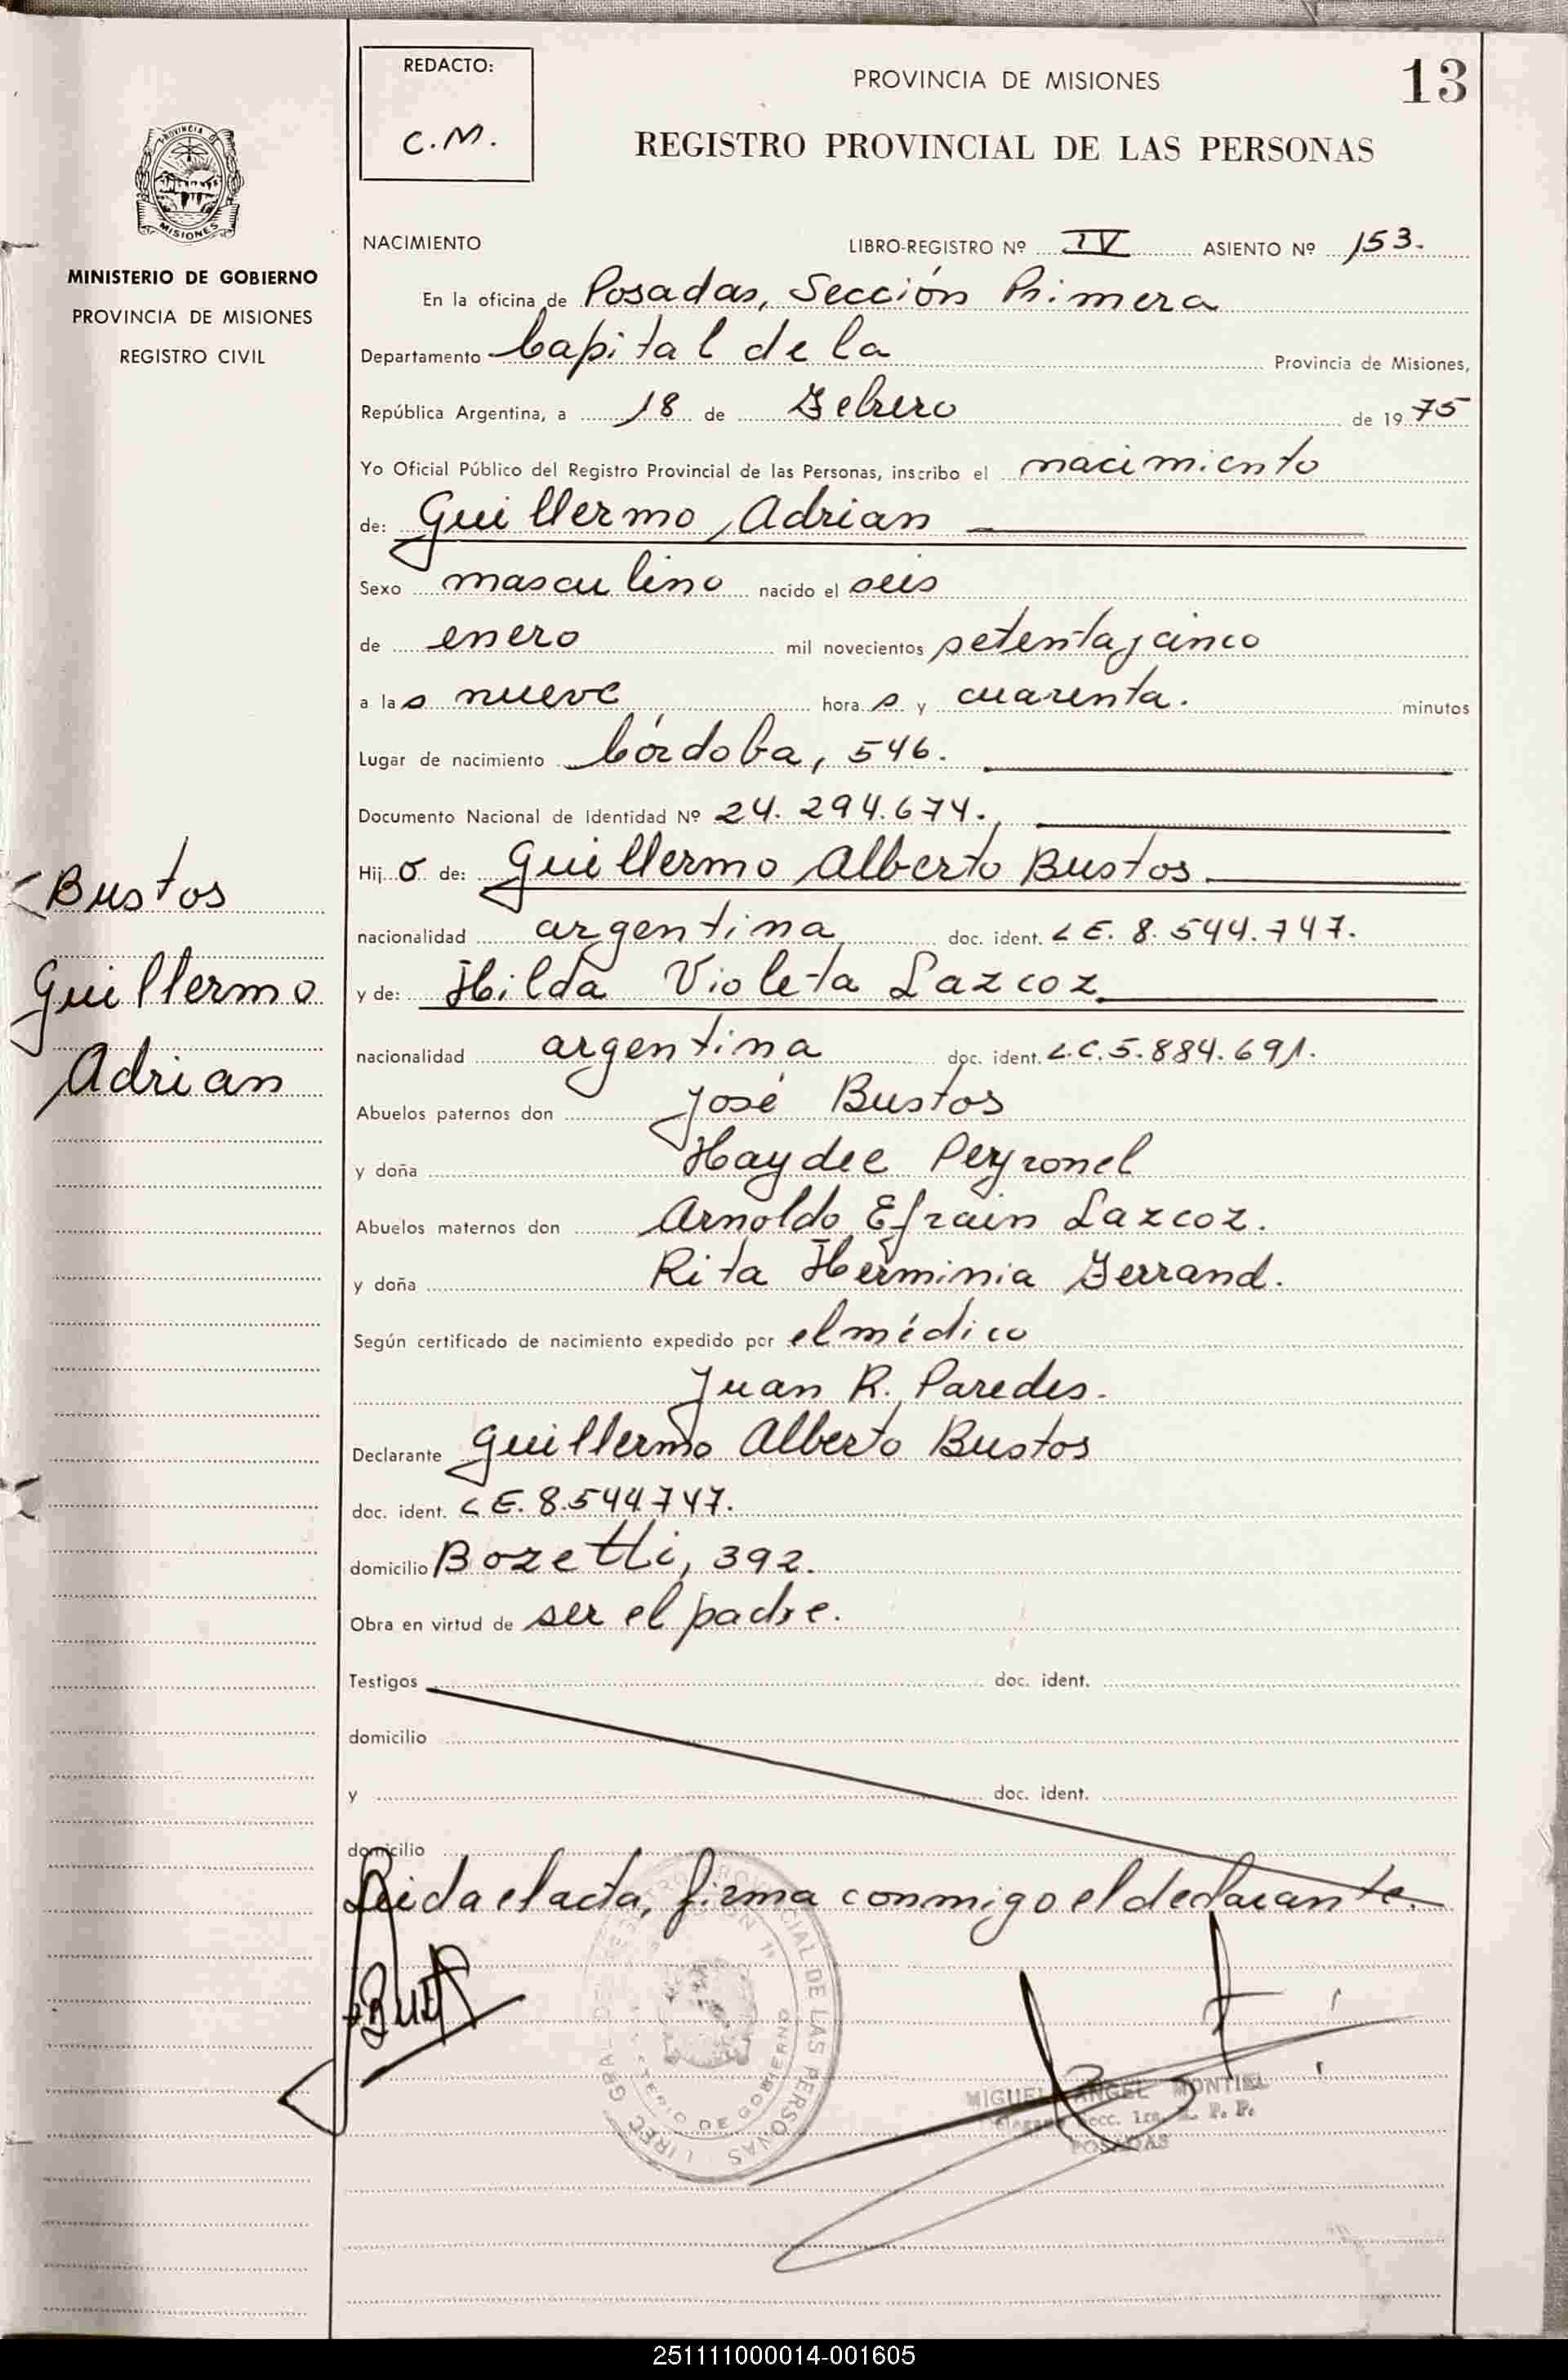 REDACTO:
C.M.
PROVINCIA DE MISIONES
13
REGISTRO PROVINCIAL DE LAS PERSONAS
PROVINCIA DE
MISIONES
MINISTERIO DE GOBIERNO
PROVINCIA DE MISIONES
REGISTRO CIVIL
NACIMIENTO LIBRO-REGISTRO Nº IV ASIENTO Nº 153.
En la oficina de Posadas, Sección Primera
Departamento Capital de la Provincia de Misiones,
República Argentina, a 18 de Febrero de 1975
Yo Oficial Público del Registro Provincial de las Personas, inscribo el nacimiento
de: Guillermo Adrian
Sexo masculino nacido el seis
de enero mil novecientos setenta y cinco
a las nueve horas y cuarenta. minutos
Lugar de nacimiento Córdoba, 546.
Documento Nacional de Identidad Nº 24.294.674.
Hijo de: Guillermo Alberto Bustos
nacionalidad argentina doc. ident. L E. 8.544.747.
y de: Hilda Violeta Lazcoz
nacionalidad argentina doc. ident. L.C. 5.884.691.
Abuelos paternos don José Bustos
y doña Haydee Peyronel
Abuelos maternos don Arnoldo Efrain Lazcoz.
y doña Rita Herminia Ferrand.
Según certificado de nacimiento expedido por el médico
Juan R. Paredes.
Declarante Guillermo Alberto Bustos
doc. ident. L E. 8.544.747.
domicilio Bozetti, 392.
Obra en virtud de ser el padre.
Testigos doc. ident.
domicilio
y doc. ident.
domicilio
Leida el acta, firma conmigo el declarante.
Bustos
Guillermo
Adrian
MIGUEL ANGEL MONTIEL
Secc. 1ra. R. P. P.
POSADAS
251111000014-001605